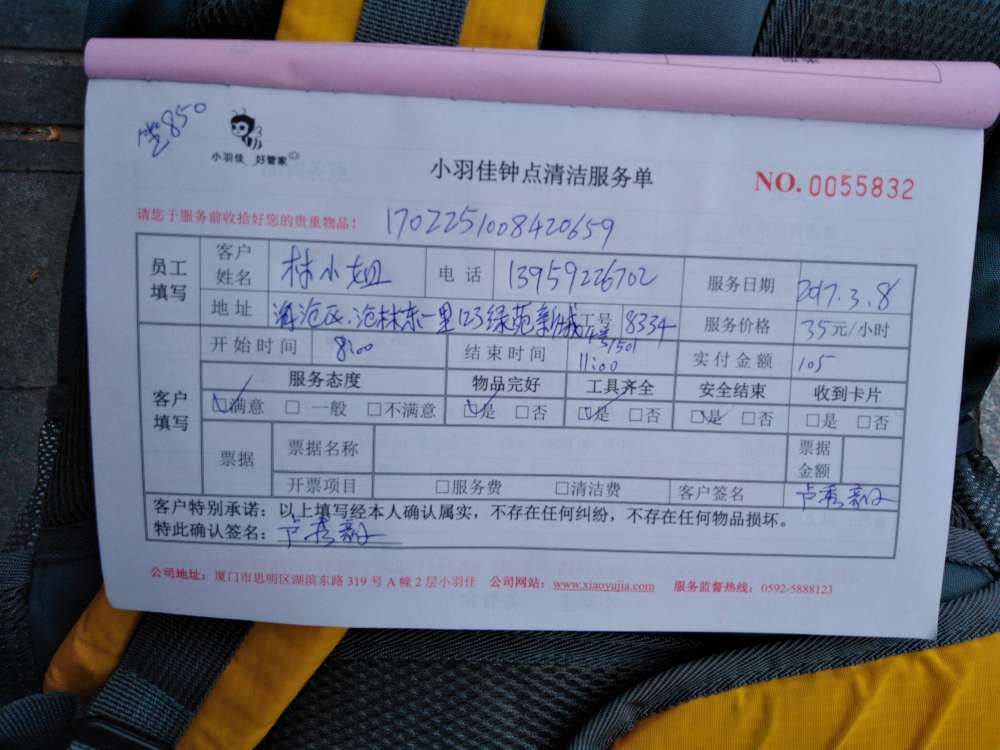 850
小羽佳 好管家
小羽佳钟点清洁服务单
NO. 0055832
请您于服务前收拾好您的贵重物品!
1702251008420659
员工填写 客户姓名 林小姐 电话 13959226702 服务日期 2017.3.8
地址 海沧区.沧林东一里123绿苑新城 4号1501 工号 8334 服务价格 35元/小时
开始时间 8:00 结束时间 11:00 实付金额 105
客户填写 服务态度 物品完好 工具齐全 安全结束 收到卡片
☑满意 □一般 □不满意 ☑是 □否 ☑是 □否 ☑是 □否 □是 □否
票据 票据名称 票据金额
开票项目 □服务费 □清洁费 客户签名 卢秀
客户特别承诺：以上填写经本人确认属实，不存在任何纠纷，不存在任何物品损坏。
特此确认签名：卢秀
公司地址：厦门市思明区湖滨东路 319 号 A 幢 2 层小羽佳 公司网站：www.xiaoyujia.com 服务监督热线：0592-5888123